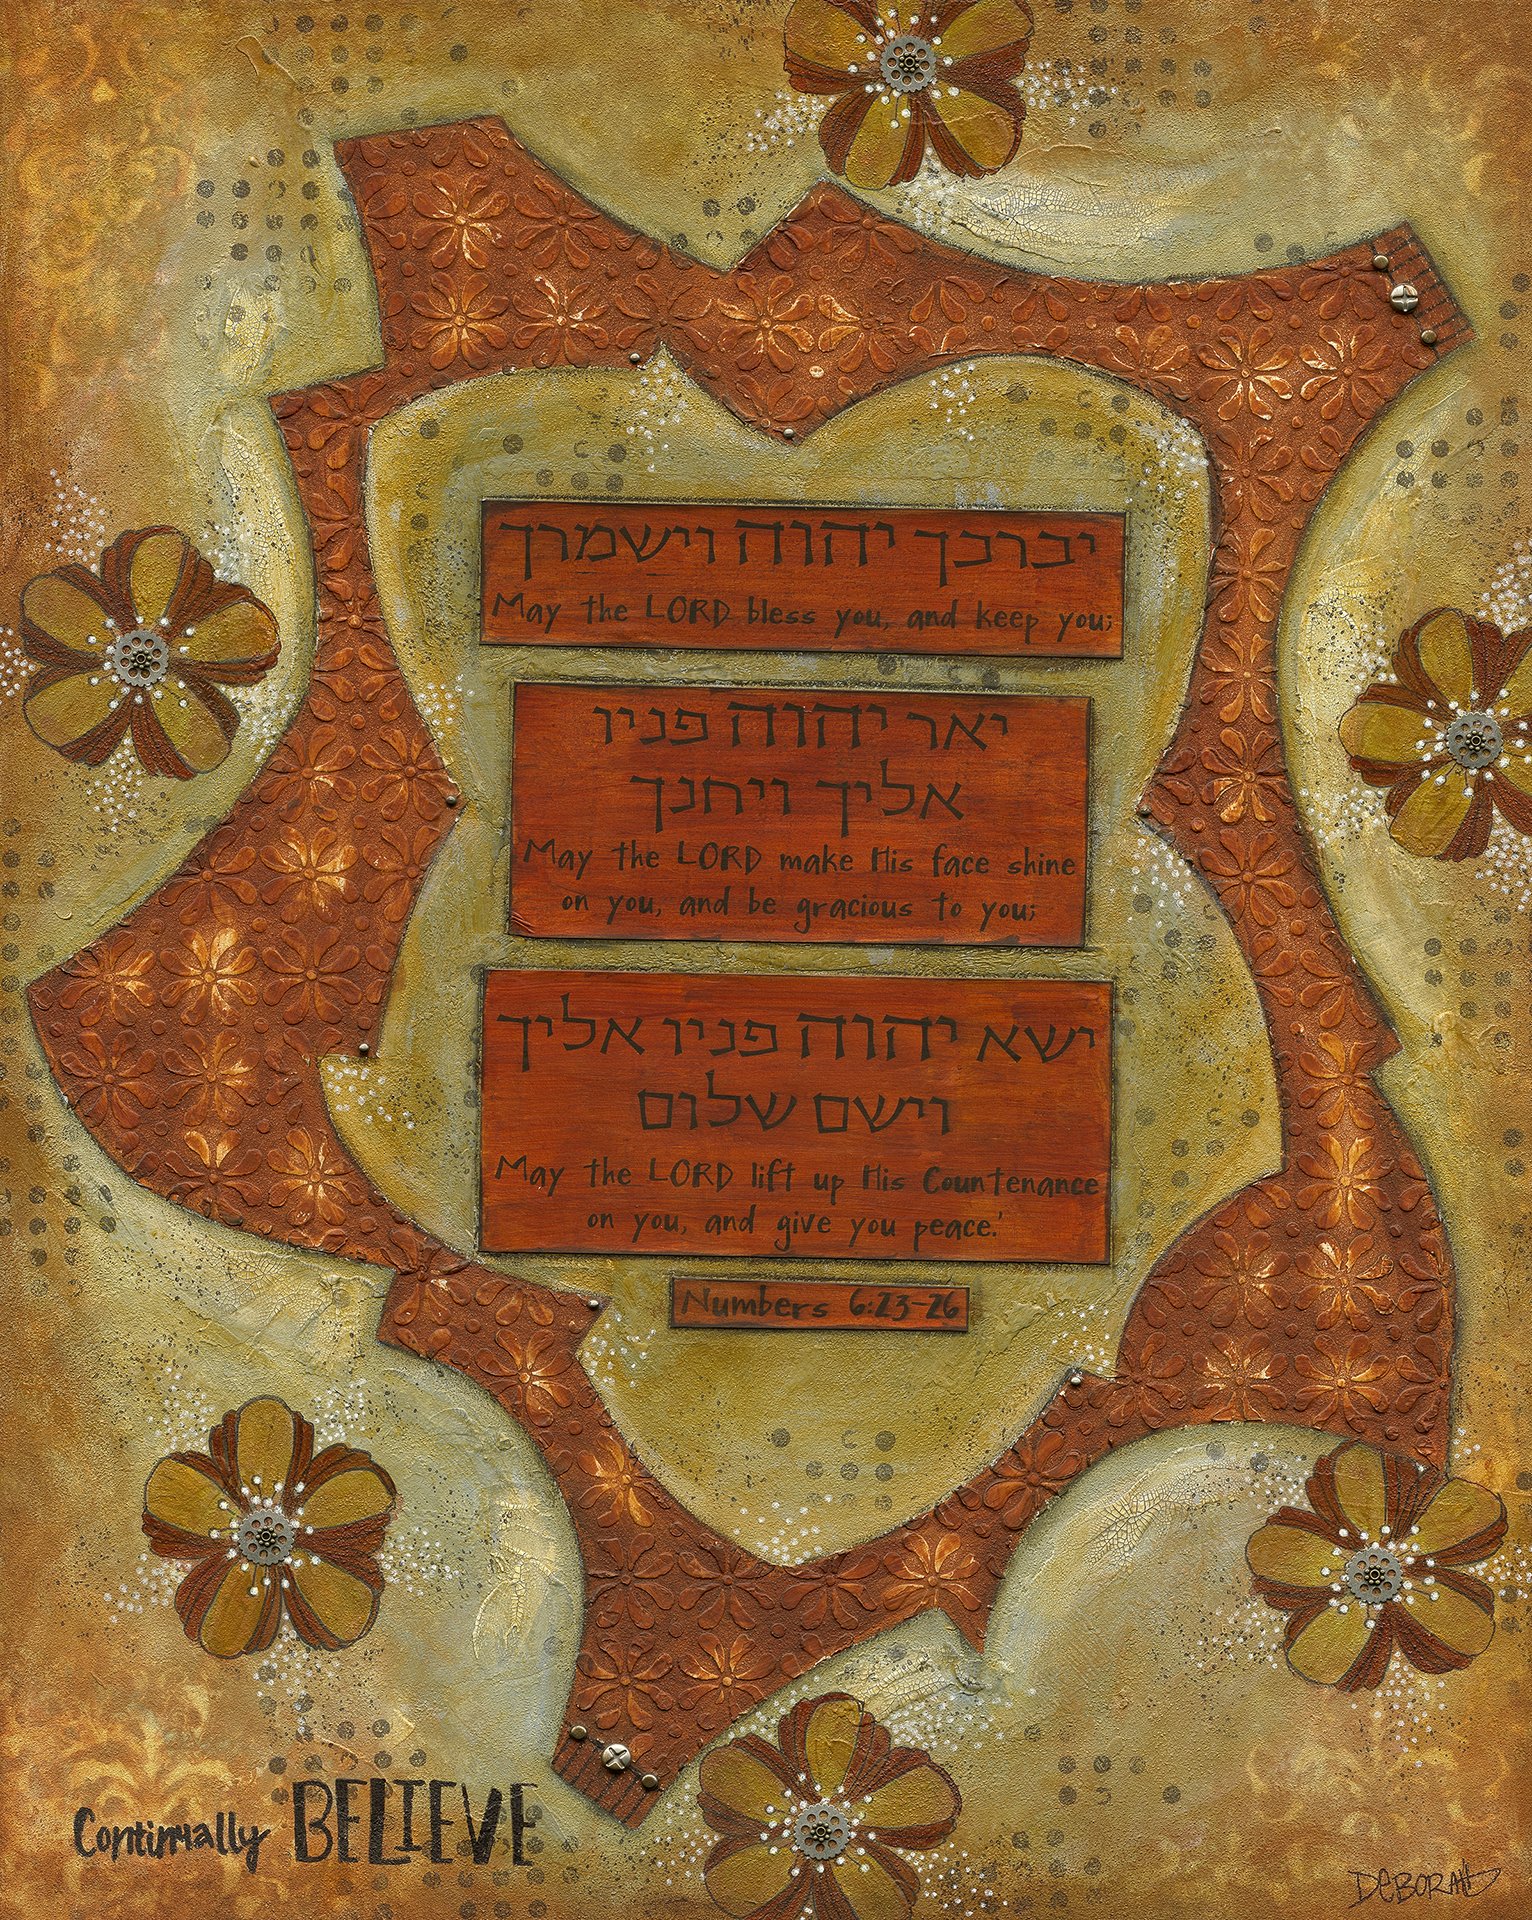 יברכך יהוה וישמרך
May the LORD bless you, and keep you;
יאר יהוה פניו
אליך ויחנך
May the LORD make His face shine
on you, and be gracious to you;
ישא יהוה פניו אליך
וישם שלום
May the LORD lift up His Countenance
on you, and give you peace.'
Numbers 6:23-26
Continually BELIEVE
DEBORAH